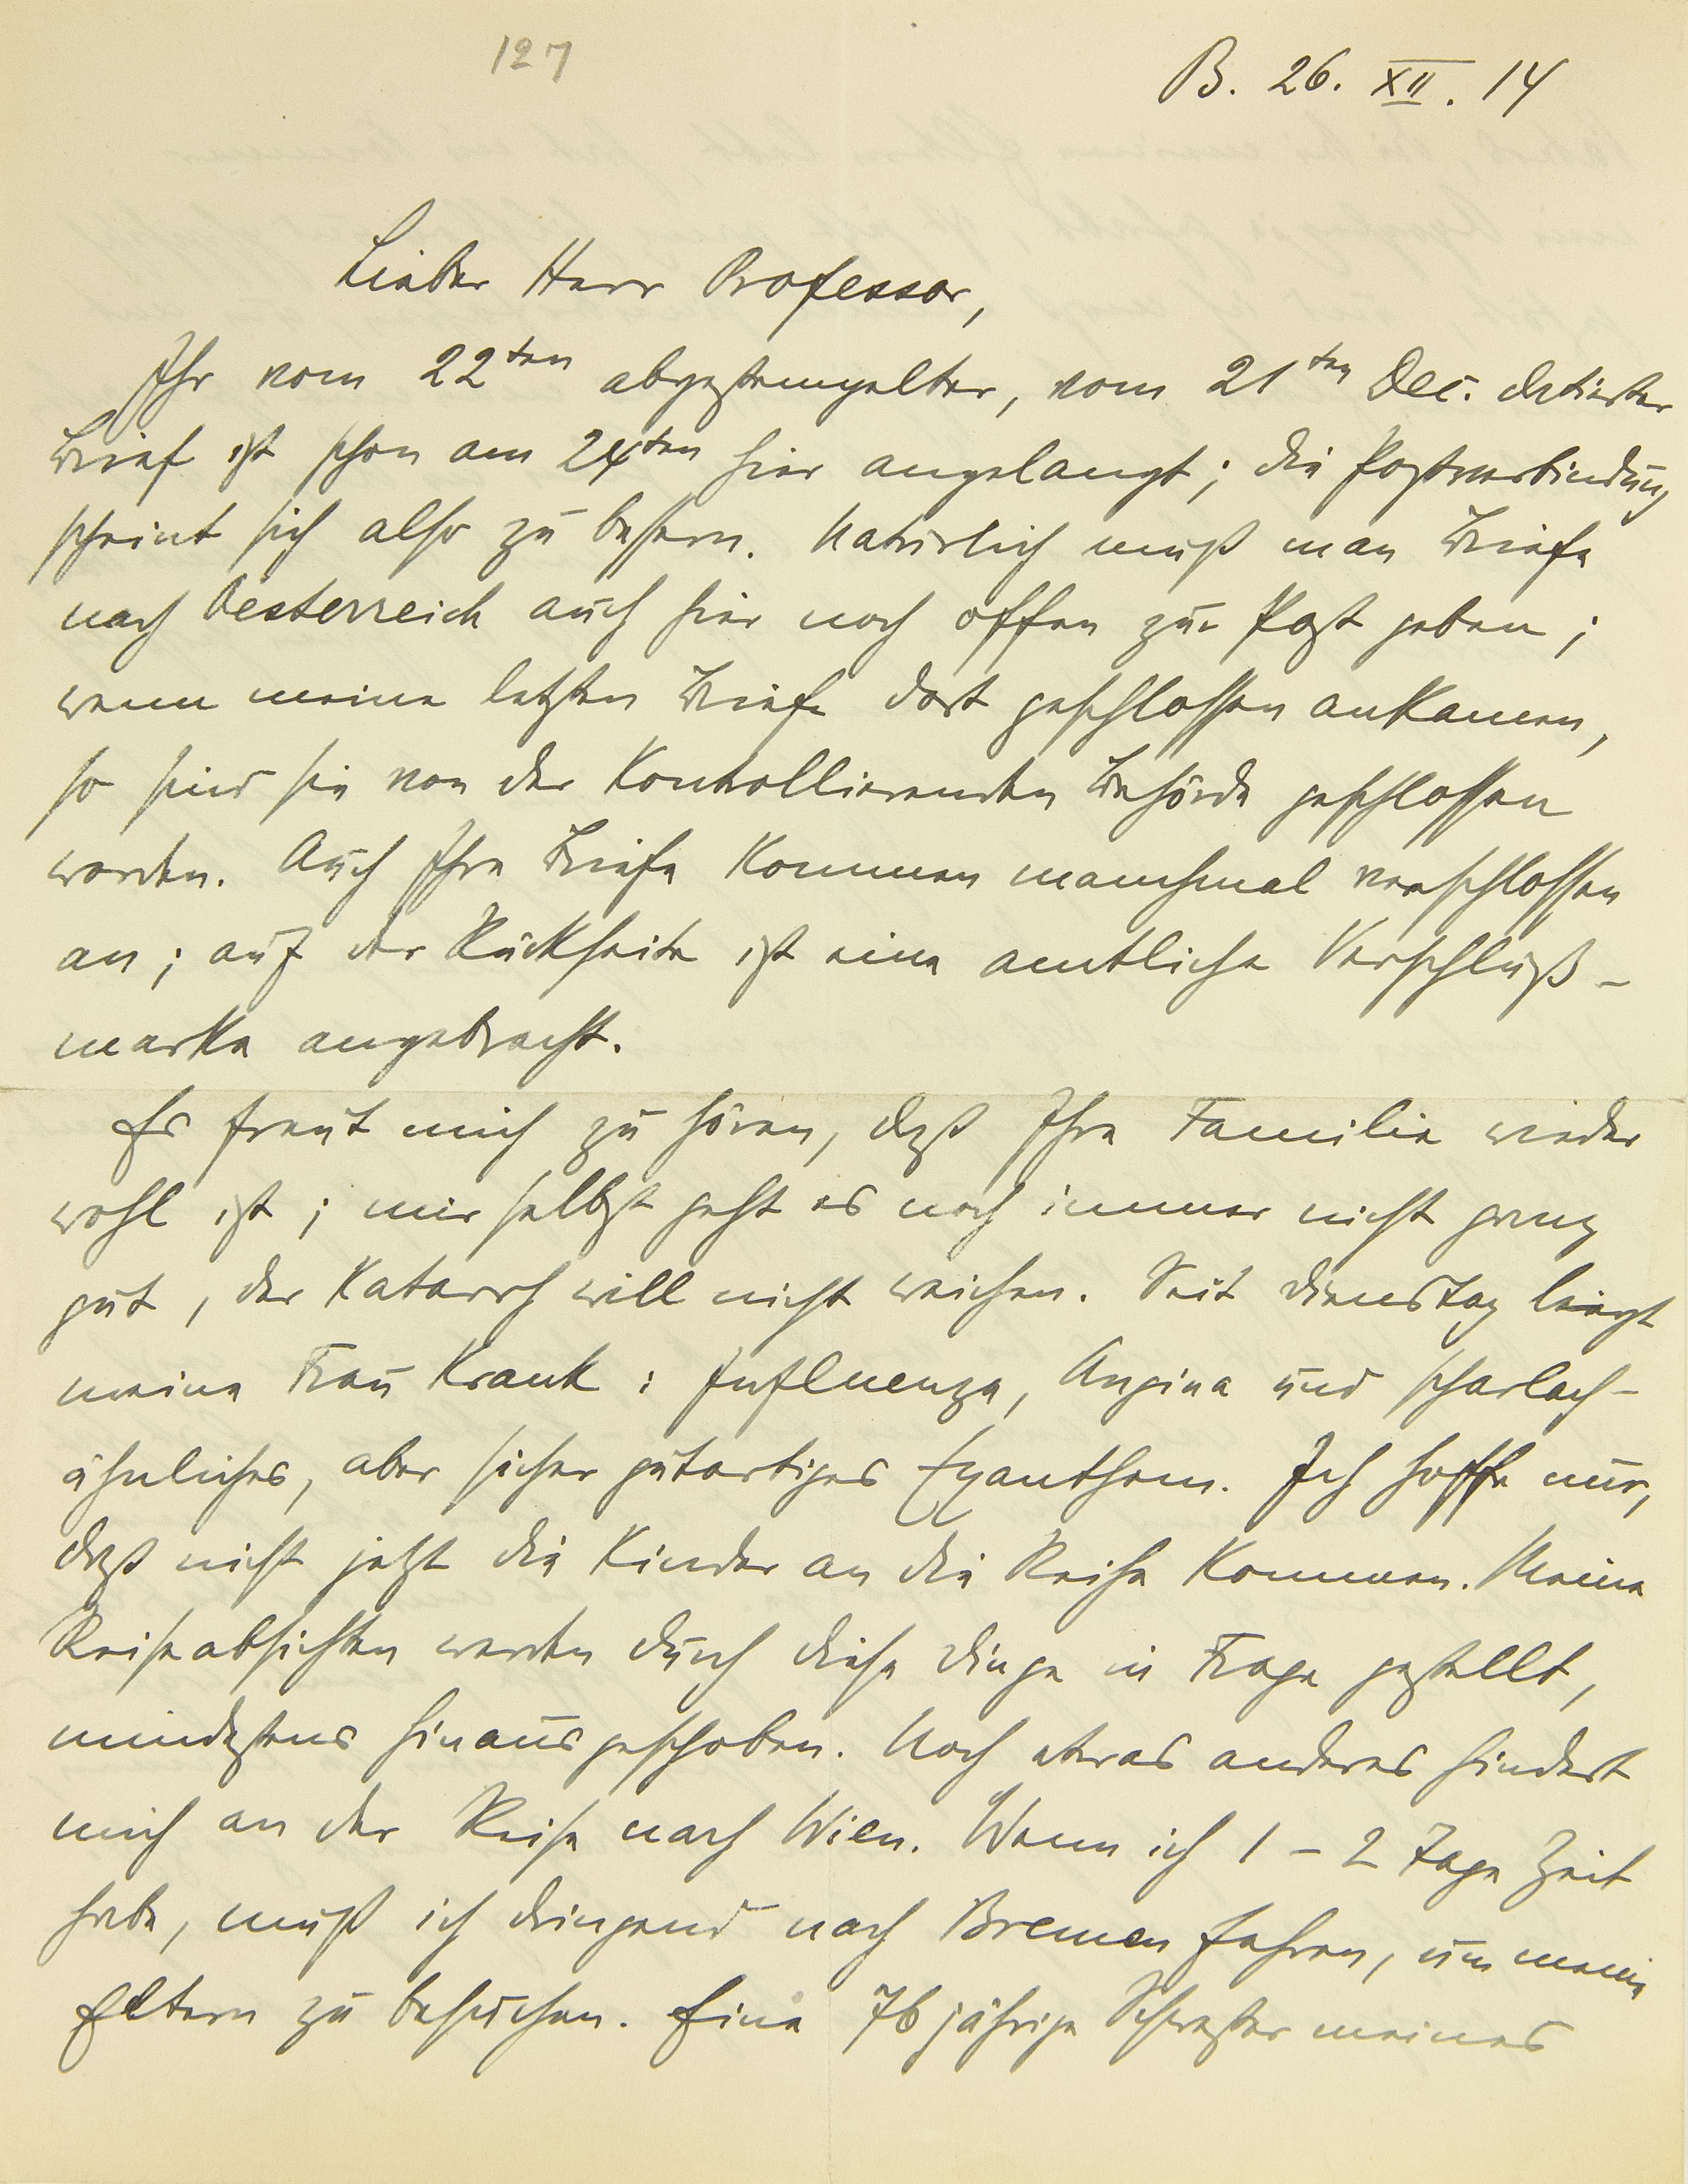 127
B. 26. XII. 14
Lieber Herr Professor,
Ihr vom 22ten abgestempelter, vom 21ten Dec. datierter
Brief ist schon am 24ten hier angelangt; die Postverbindung
scheint sich also zu bessern. Natürlich muß man Briefe
nach Oesterreich auch hier noch offen zur Post geben;
wenn meine letzten Briefe dort geschlossen ankamen,
so sind sie von der Kontrollierenden Behörde geschlossen
worden. Auch Ihre Briefe kommen manchmal verschlossen
an; auf der Rückseite ist eine amtliche Verschluß-
marke angebracht.
Es freut mich zu hören, daß Ihre Familie wieder
wohl ist; mir selbst geht es noch immer nicht ganz
gut, der Katarrh will nicht weichen. Seit Dienstag liegt
meine Frau krank: Influenza, Angina und scharlach-
ähnliches, aber sicher gutartiges Exanthem. Ich hoffe nur,
daß nicht jetzt die Kinder an die Reihe kommen. Meine
Reiseabsichten werden durch diese Dinge in Frage gestellt,
mindestens hinausgeschoben. Noch etwas anderes hindert
mich an der Reise nach Wien. Wenn ich 1 – 2 Tage Zeit
habe, muß ich dringend nach Bremen fahren, um meine
Eltern zu besuchen. Eine 76 jährige Schwester meines